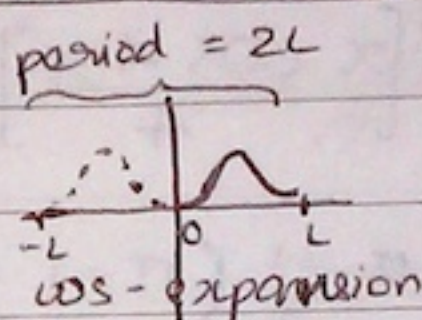 period = 2L
-L O L
cos - expansion